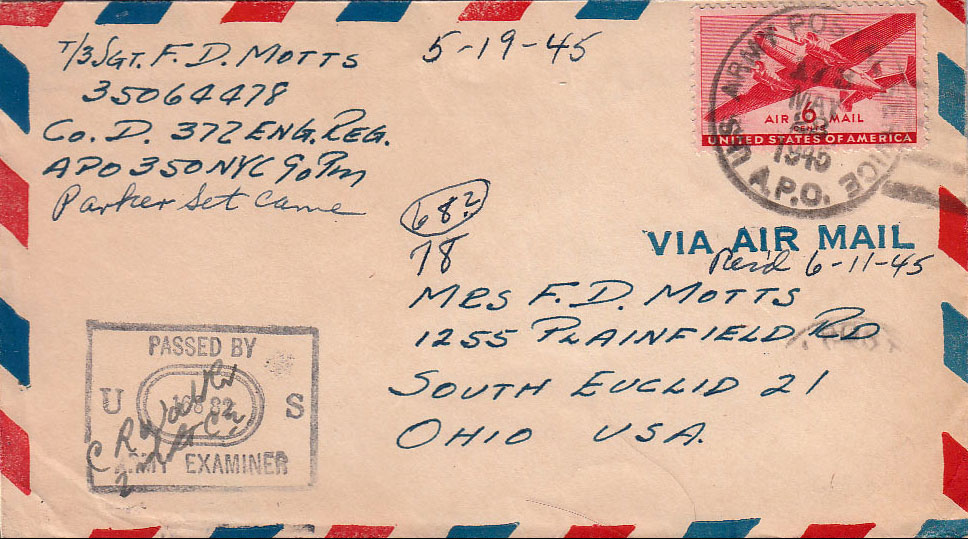 T/3 SGT. F. D. MOTTS
35064478
Co. D. 372 ENG. REG.
APO 350 NYC 9o Pm
Parker Set Came
5-19-45
U.S. ARMY POSTAL SERVICE
A.P.O.
MAY
1945
AIR 6 MAIL
CENTS
UNITED STATES OF AMERICA
682
78
VIA AIR MAIL
Rec'd 6-11-45
MRS F. D. MOTTS
1255 PLAINFIELD RD
SOUTH EUCLID 21
OHIO USA.
PASSED BY
U S
ARMY EXAMINER